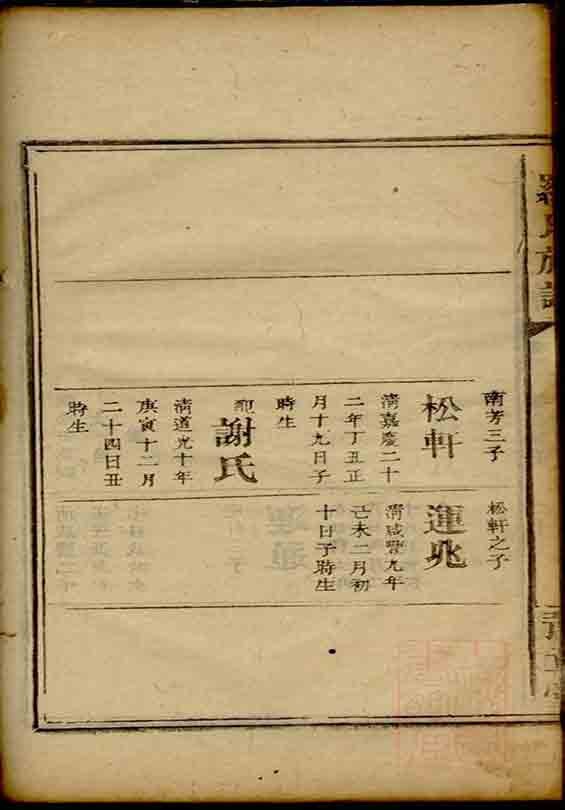 羅氏族譜
南芳三子
松軒
清嘉慶二十
二年丁丑正
月十九日子
時生
配
謝氏
清道光十年
庚寅十二月
二十四日丑
時生
松軒之子
運兆
清咸豐九年
己未二月初
十日子時生